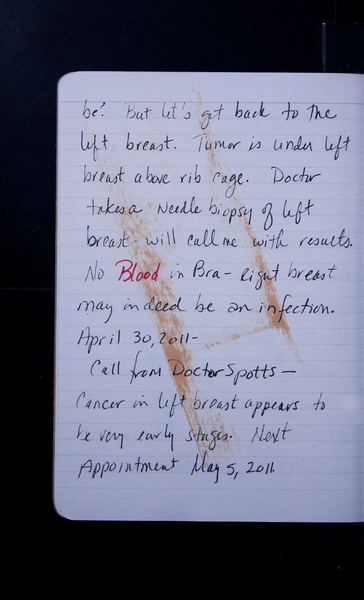 be? But let's get back to the
left breast. Tumor is under left
breast above rib cage. Doctor
takes a needle biopsy of left
breast - will call me with results.
No Blood in Bra - right breast
may indeed be an infection.
April 30, 2011-
Call from Doctor Spotts -
Cancer in left breast appears to
be very early stages. Next
Appointment May 5, 2011.